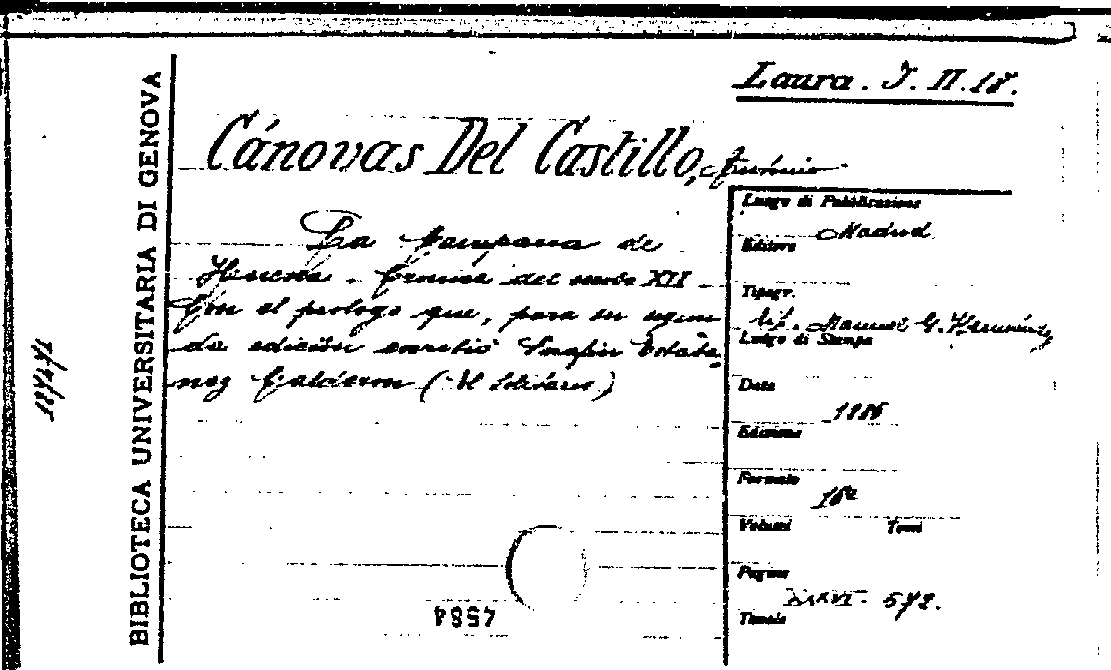 Laura. J. II. 18.
Cánovas Del Castillo, Antonio
La Campana de
Huesca - Cronica del secolo XII
Con el prologo que, para su segun
da edición escribió Serafin Estéba
nez Calderon (El Solitario)
BIBLIOTECA UNIVERSITARIA DI GENOVA
Luogo di Pubblicazione
Madrid
Editore
Tipogr.
tip. Manuel G. Hernández
Luogo di Stampa
Data
1886
Edizione
Formato
16º
Volumi Tomi
Pagine
XXXVI - 572.
Tavole
4584